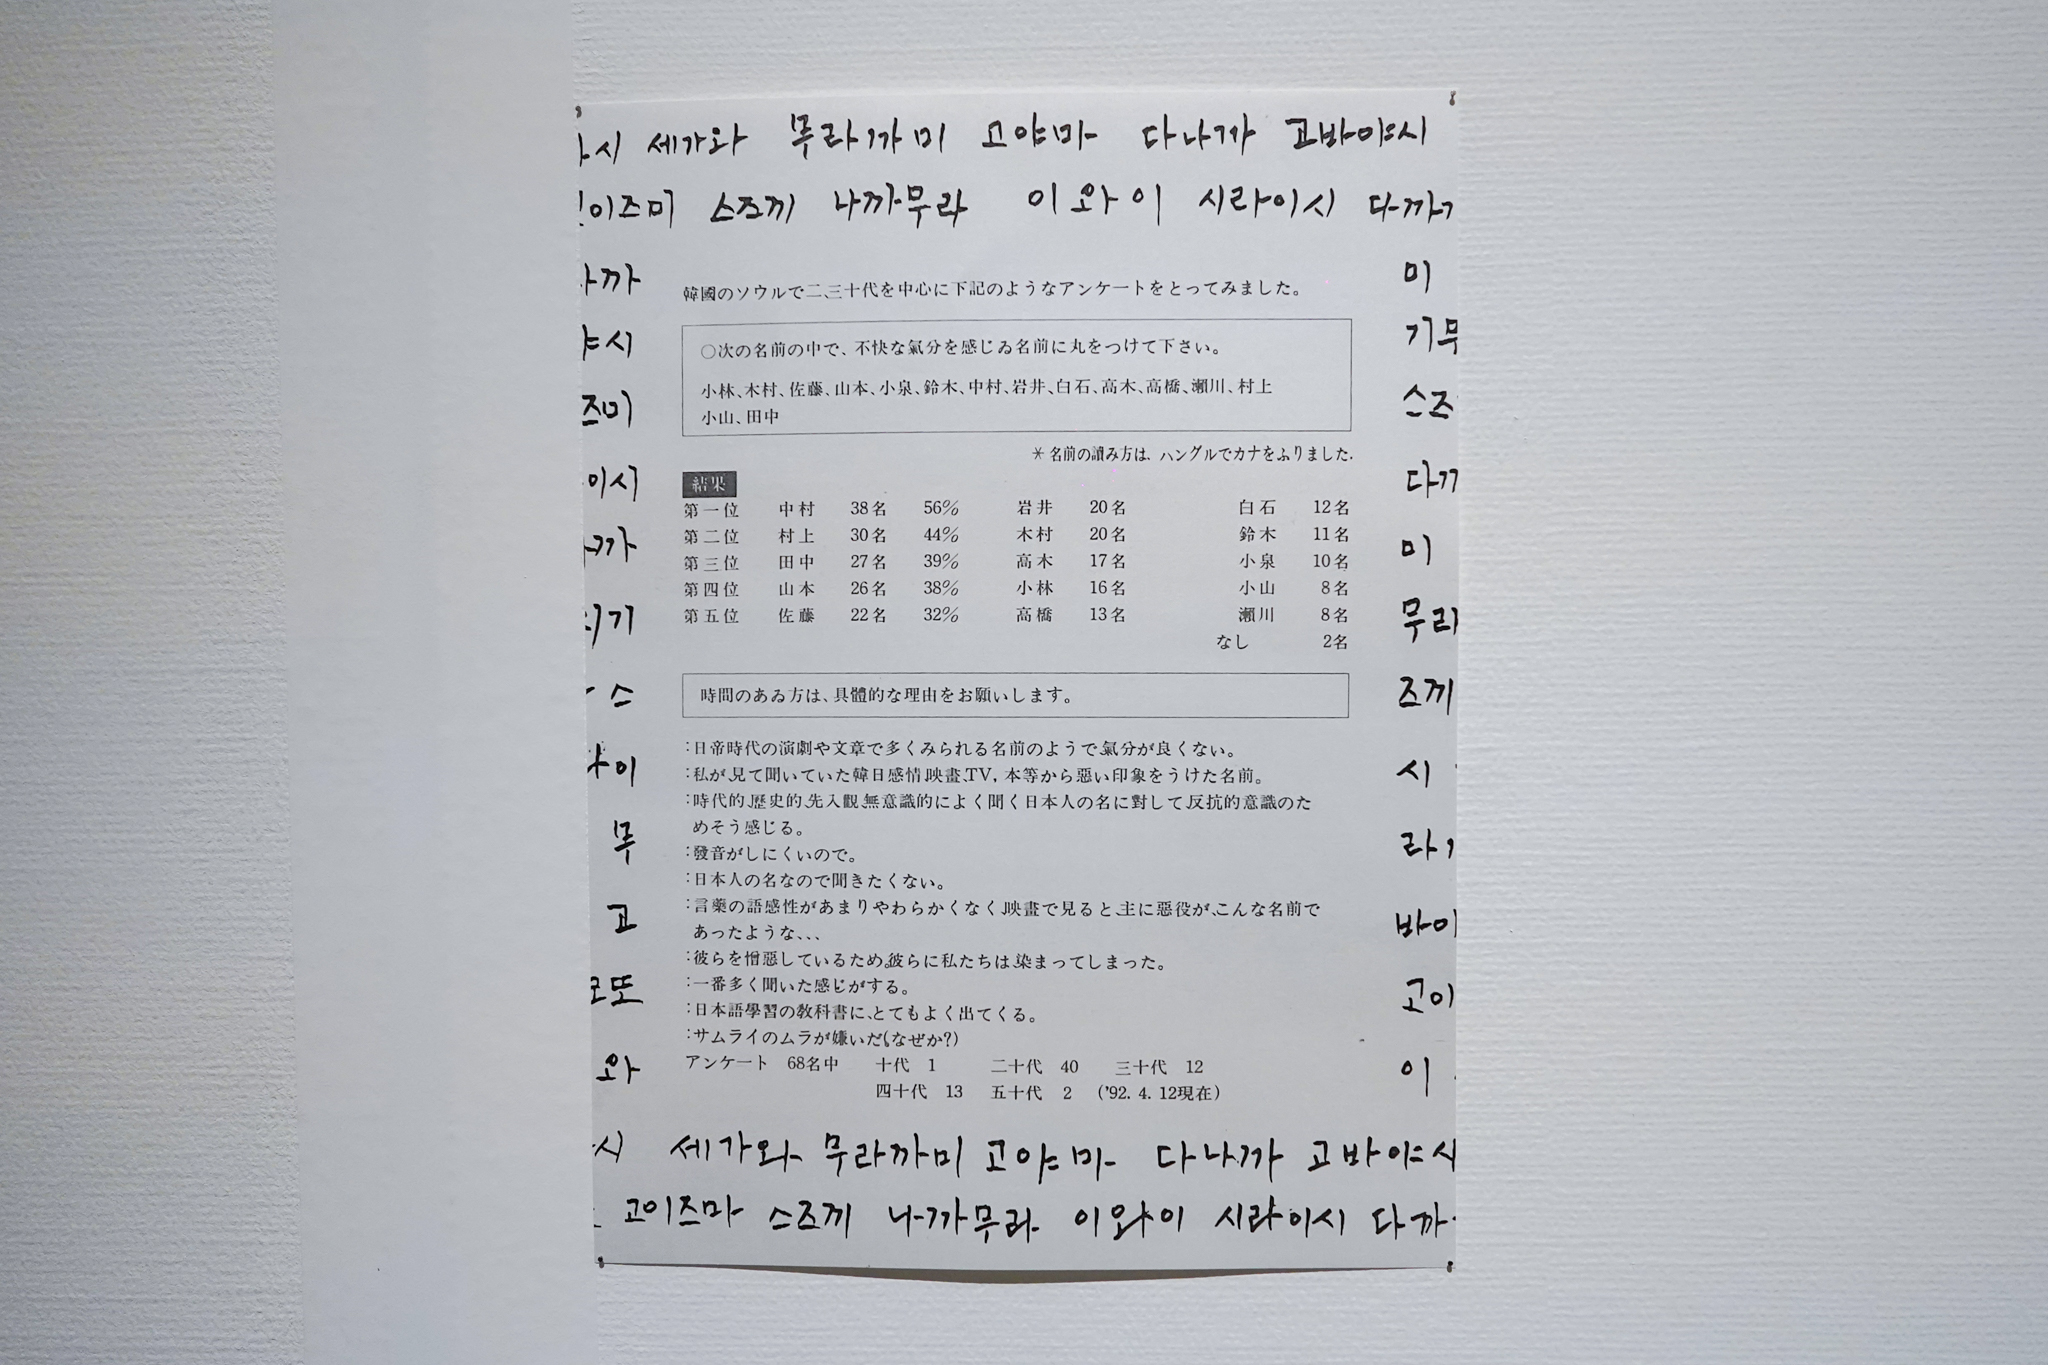 시 세가와 무라까미 고야마 다나까 고바야시
이즈미 스즈끼 나까무라 이와이 시라이시 다까
까
미
韓國のソウルで二、三十代を中心に下記のようなアンケートをとってみました。
시
기무
○次の名前の中で、不快な氣分を感じゐ名前に丸をつけて下さい。
小林、木村、佐藤、山本、小泉、鈴木、中村、岩井、白石、高木、高橋、瀬川、村上
小山、田中
즈미
스즈
＊名前の讀み方は、ハングルでカナをふりました.
이시
다까
結果
第一位 中村 38名 56% 岩井 20名 白石 12名
第二位 村上 30名 44% 木村 20名 鈴木 11名
第三位 田中 27名 39% 高木 17名 小泉 10名
第四位 山本 26名 38% 小林 16名 小山 8名
第五位 佐藤 22名 32% 高橋 13名 瀬川 8名
なし 2名
까
미
기
무라
時間のあゐ方は、具體的な理由をお願いします。
스
즈끼
:日帝時代の演劇や文章で多くみられる名前のようで、氣分が良くない。
:私が、見て聞いていた韓日感情、映畫、TV, 本等から惡い印象をうけた名前。
:時代的、歷史的、先入觀、無意識的によく聞く日本人の名に對して、反抗的意識のた
めそう感じる。
:發音がしにくいので。
:日本人の名なので聞きたくない。
:言葉の語感性があまりやわらかくなく、映畫で見ると、主に惡役が、こんな名前で
あったような、、、
:彼らを憎惡しているため、彼らに私たちは、染まってしまった。
:一番多く聞いた感じがする。
:日本語學習の敎科書に、とてもよく出てくる。
:サムライのムラが嫌いだ(なぜか?)
이
시
무
라
고
바야
또
고이
와
이
アンケート 68名中 十代 1 二十代 40 三十代 12
四十代 13 五十代 2 ('92. 4. 12現在)
시 세가와 무라까미 고야마 다나까 고바야시
고이즈마 스즈끼 나까무라 이와이 시라이시 다까